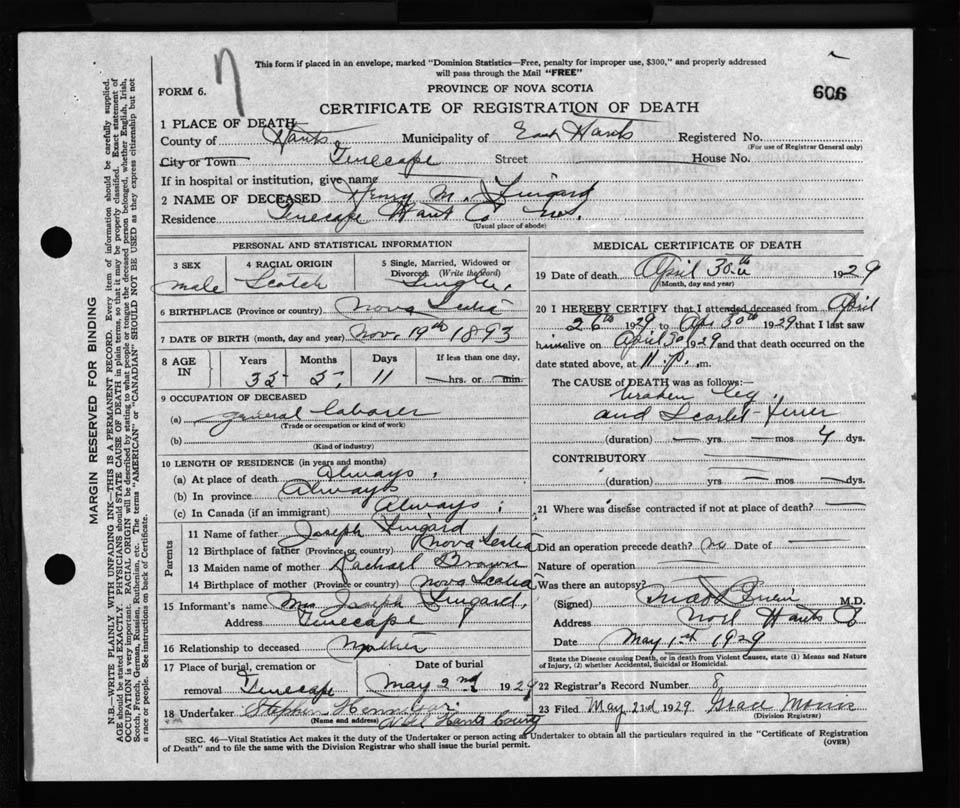 This form if placed in an envelope, marked "Dominion Statistics—Free, penalty for improper use, $300," and properly addressed
will pass through the Mail "FREE"
FORM 6.
7
PROVINCE OF NOVA SCOTIA
606
CERTIFICATE OF REGISTRATION OF DEATH
1 PLACE OF DEATH
County of Hants Municipality of East Hants Registered No.
(For use of Registrar General only)
City or Town Tenecape Street House No.
If in hospital or institution, give name
2 NAME OF DECEASED Henry M. Lingard
Residence Tenecape Hants Co N.S.
(Usual place of abode)
PERSONAL AND STATISTICAL INFORMATION
3 SEX 4 RACIAL ORIGIN 5 Single, Married, Widowed or
Divorced. (Write the word)
male Scotch Single.
6 BIRTHPLACE (Province or country) Nova Scotia
7 DATE OF BIRTH (month, day and year) Nov. 19th 1893
8 AGE IN Years Months Days If less than one day,
35 5 11 hrs. or min.
9 OCCUPATION OF DECEASED
(a) general laborer
(Trade or occupation or kind of work)
(b)
(Kind of industry)
10 LENGTH OF RESIDENCE (in years and months)
(a) At place of death Always.
(b) In province Always
(c) In Canada (if an immigrant) Always.
Parents
11 Name of father Joseph Lingard
12 Birthplace of father (Province or country) Nova Scotia
13 Maiden name of mother Rachael Brown
14 Birthplace of mother (Province or country) Nova Scotia
15 Informant's name Mrs Joseph Lingard,
Address Tenecape
16 Relationship to deceased Mother
17 Place of burial, cremation or Date of burial
removal Tenecape May 2nd 1929
18 Undertaker Stephen
(Name and address) Hants County
MEDICAL CERTIFICATE OF DEATH
19 Date of death April 30th 1929
(Month, day and year)
20 I HEREBY CERTIFY that I attended deceased from April
26th 1929 to Apr 30th 1929 that I last saw
him alive on April 30 1929 and that death occurred on the
date stated above, at 11. p. m.
The CAUSE OF DEATH was as follows:—
Broken leg
and Scarlet-Fever
(duration) yrs. mos 4 dys.
CONTRIBUTORY
(duration) yrs. mos dys.
21 Where was disease contracted if not at place of death?
Did an operation precede death? no Date of
Nature of operation
Was there an autopsy?
(Signed) M.D.
Address Noel Hants Co
Date May 1st 1929
State the Disease causing Death, or in death from Violent Causes, state (1) Means and Nature
of Injury, (2) whether Accidental, Suicidal or Homicidal.
22 Registrar's Record Number 8
23 Filed May 2nd 1929
(Division Registrar)
SEC. 46—Vital Statistics Act makes it the duty of the Undertaker or person acting as Undertaker to obtain all the particulars required in the "Certificate of Registration
of Death" and to file the same with the Division Registrar who shall issue the burial permit.
(OVER)
MARGIN RESERVED FOR BINDING
N.B.—WRITE PLAINLY WITH UNFADING INK—THIS IS A PERMANENT RECORD. Every item of information should be carefully supplied.
AGE should be stated EXACTLY. PHYSICIANS should STATE CAUSE OF DEATH in plain terms, so that it may be properly classified. Exact statement of
OCCUPATION is very important. RACIAL ORIGIN will be described by stating to what people or tongue the deceased person belonged, whether English, Irish,
Scotch, French, German, Russian, Ruthenian, etc. The terms "AMERICAN" or "CANADIAN" SHOULD NOT BE USED as they express citizenship but not
a race or people. See instructions on back of Certificate.